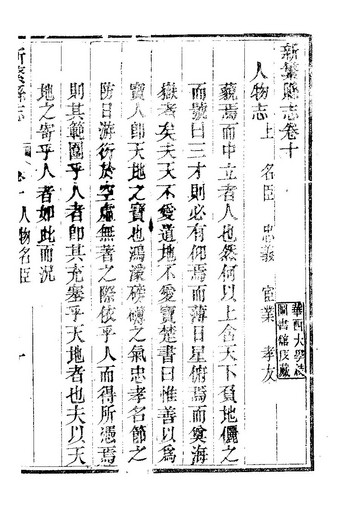 新繁縣志卷十
人物志上 名臣 忠義 宦業 孝友
藐焉而中立者人也然何以上含天下負地儷之
而號曰三才則必有仰焉而薄日星俯焉而奠海
嶽者矣夫天不愛道地不愛寶楚書曰惟善以為
寶人卽天地之寶也鴻濛磅礴之氣忠孝名節之
防日游衍於空虛無著之際依乎人而得所憑焉
則其範圍乎人者卽其充塞乎天地者也夫以天
地之寄乎人者如此而況
新繁縣志 卷十 人物名臣 一
華西大學
圖書館庋藏